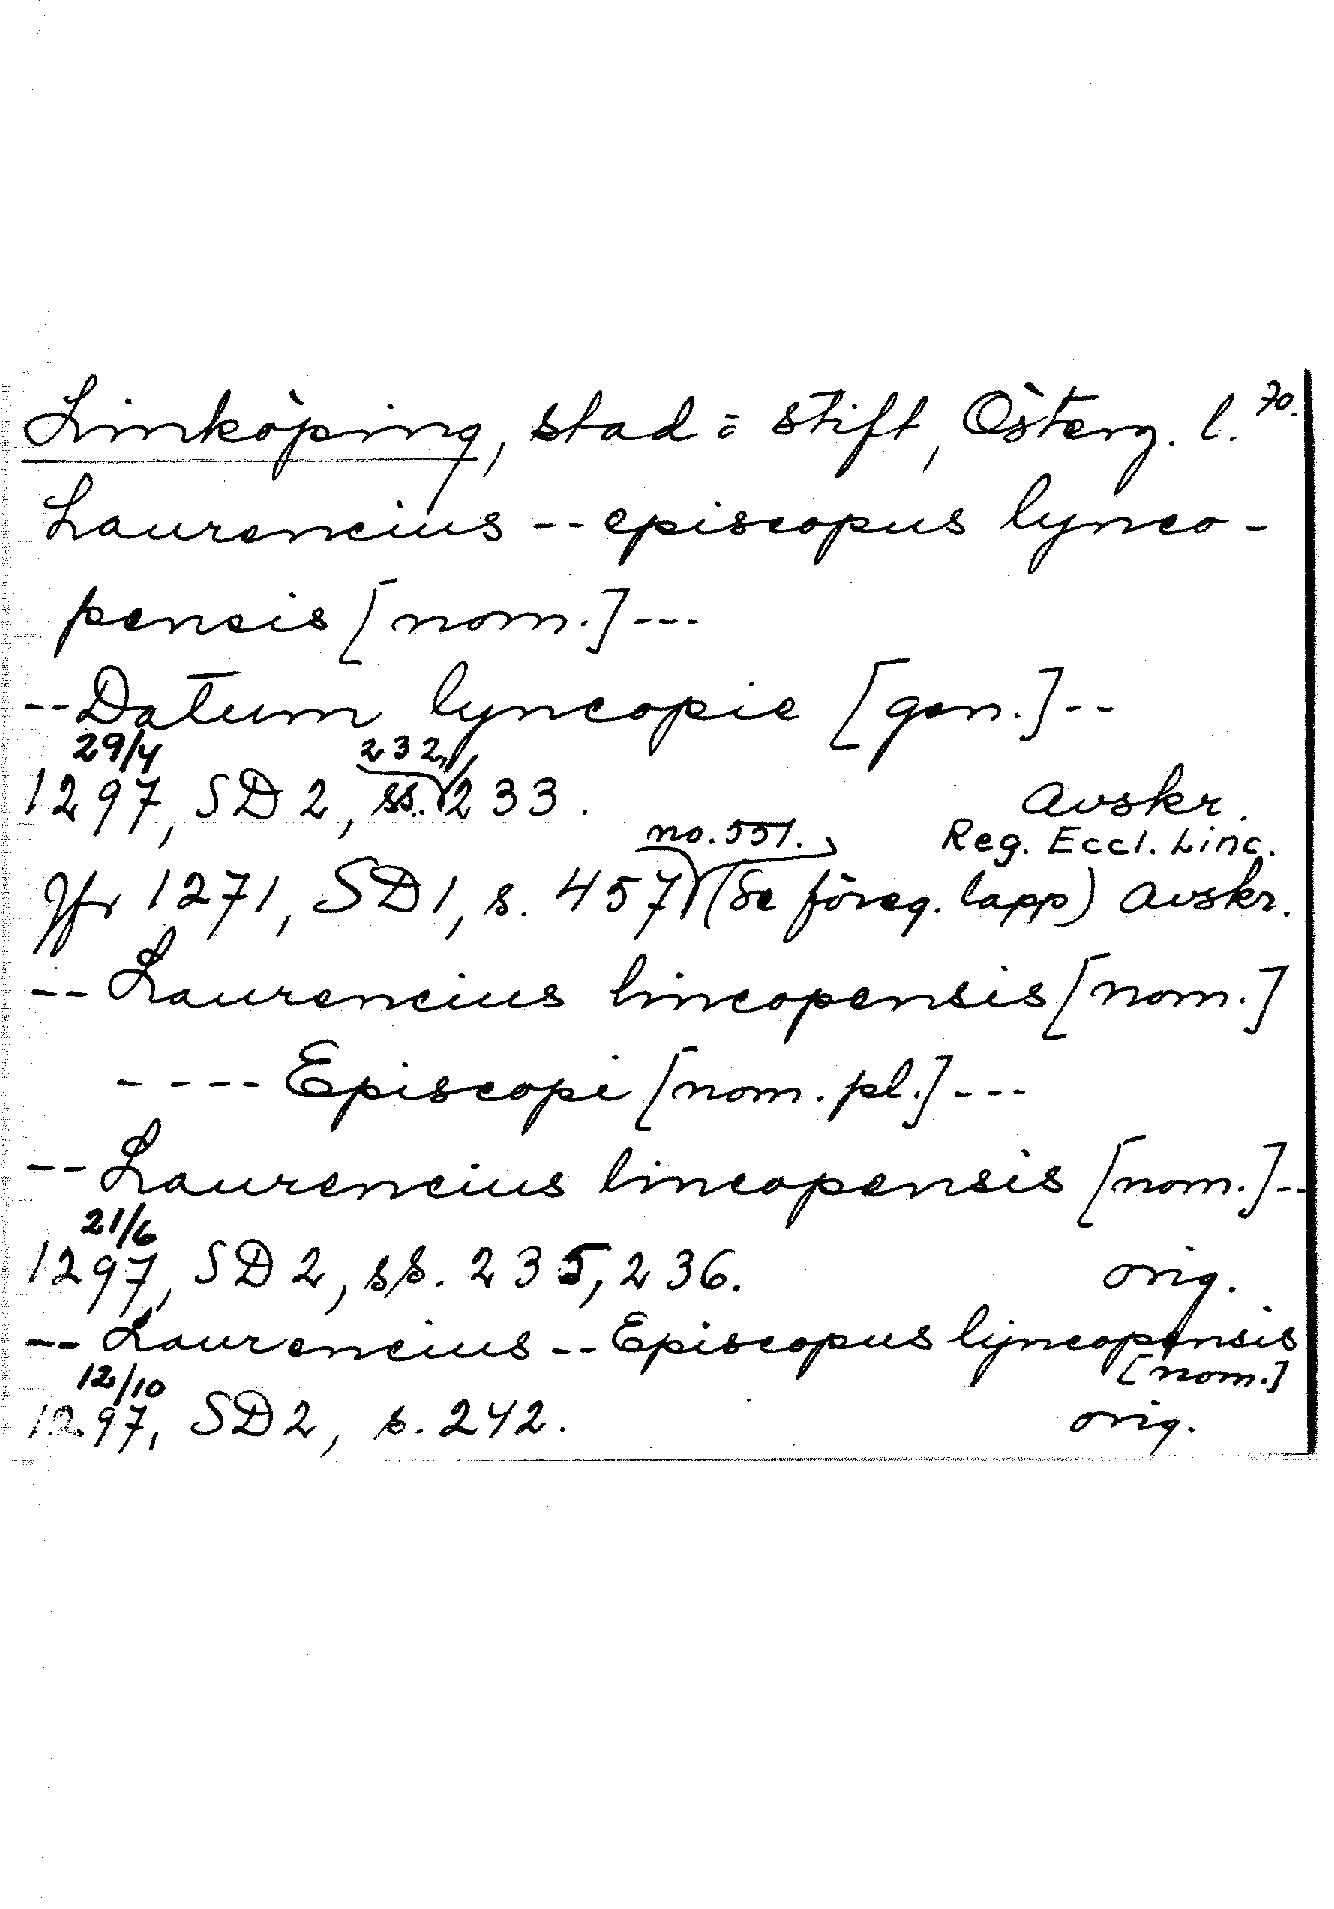 Linköping, stad = stift, Österg. l. 70.
Laurencius -- episcopus lynco-
pensis [nom.] ---
-- Datum lyncopie [gen.] --
29/4 232,
1297, SD 2, ss. 233. Avskr.
no. 551. Reg. Eccl. Linc.
Jfr 1271, SD 1, s. 457 (Se föreg. lapp) Avskr.
-- Laurencius lincopensis [nom.]
---- Episcopi [nom. pl.] ---
-- Laurencius lincopensis [nom.] --
21/6
1297, SD 2, ss. 235, 236. orig.
-- Laurencius -- Episcopus lyncopensis
12/10 [nom.]
1297, SD 2, s. 242. orig.